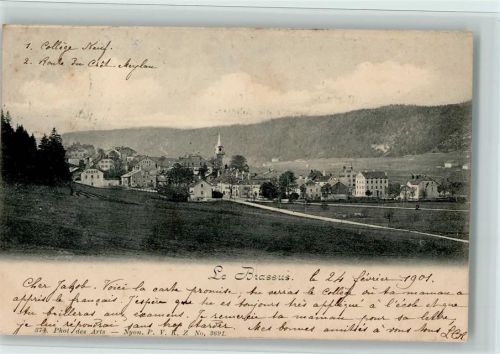 1. Collège Neuf.
2. Route du Crêt Meylan
Le Brassus. le 24 février 1901.
Cher Jakob. Voici la carte promise tu verras le Collège où ta maman a
appris le français. J'espère que tu es toujours très appliqué à l'école et que
tu brilleras aux examens. Je remercie ta maman pour sa lettre,
je lui répondrai sans trop tarder. Mes bonnes amitiés à vous tous
374. Phot. des Arts — Nyon. P. V. K. Z. No. 3691.